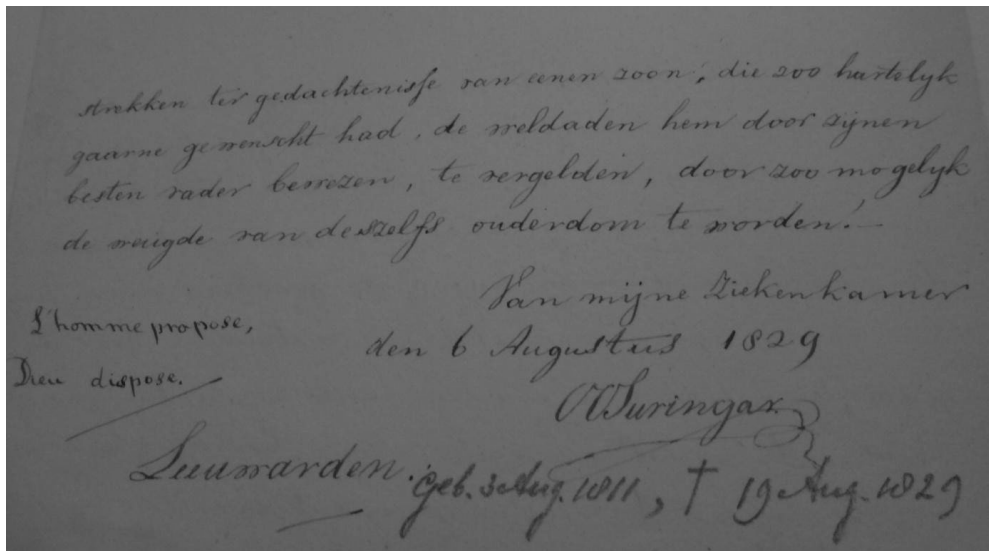 strekken ter gedachtenisse van eenen zoon, die zoo hartelyk
gaarne gewenscht had, de weldaden hem door zijnen
besten vader bewezen, te vergelden, door zoo mogelyk
de vreugde van deszelfs ouderdom te worden!—
Van mijne Ziekenkamer
L'homme propose,
den 6 Augustus 1829
Dieu dispose.
Suringar
Leeuwarden.
Geb. 3 Aug. 1811, † 19 Aug. 1829